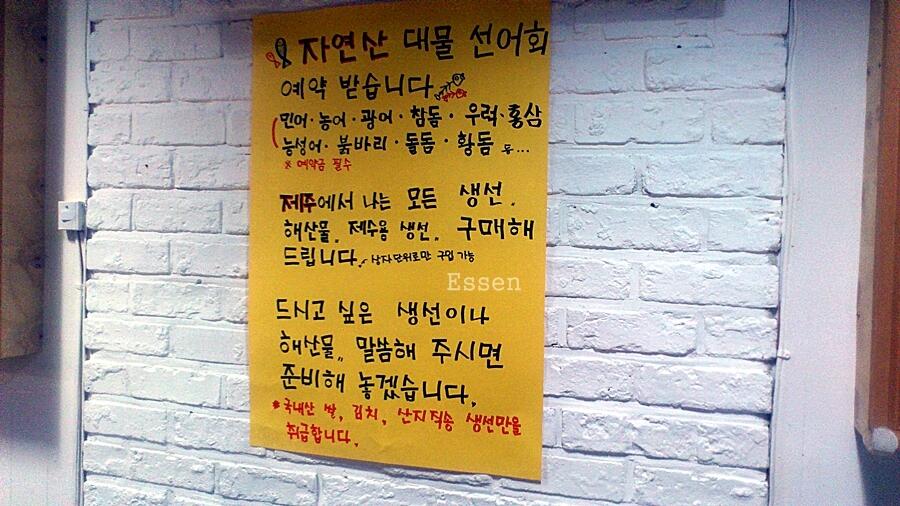 자연산 대물 선어회
예약 받습니다
(민어·농어·광어·참돔·우럭·홍삼
능성어·붉바리·돌돔·황돔 등...
※ 예약금 필수
제주에서 나는 모든 생선,
해산물, 제수용 생선, 구매해
드립니다. 상자단위로만 구입 가능
Essen
드시고 싶은 생선이나
해산물, 말씀해 주시면
준비해 놓겠습니다.
※국내산 쌀, 김치, 산지직송 생선만을
취급합니다.